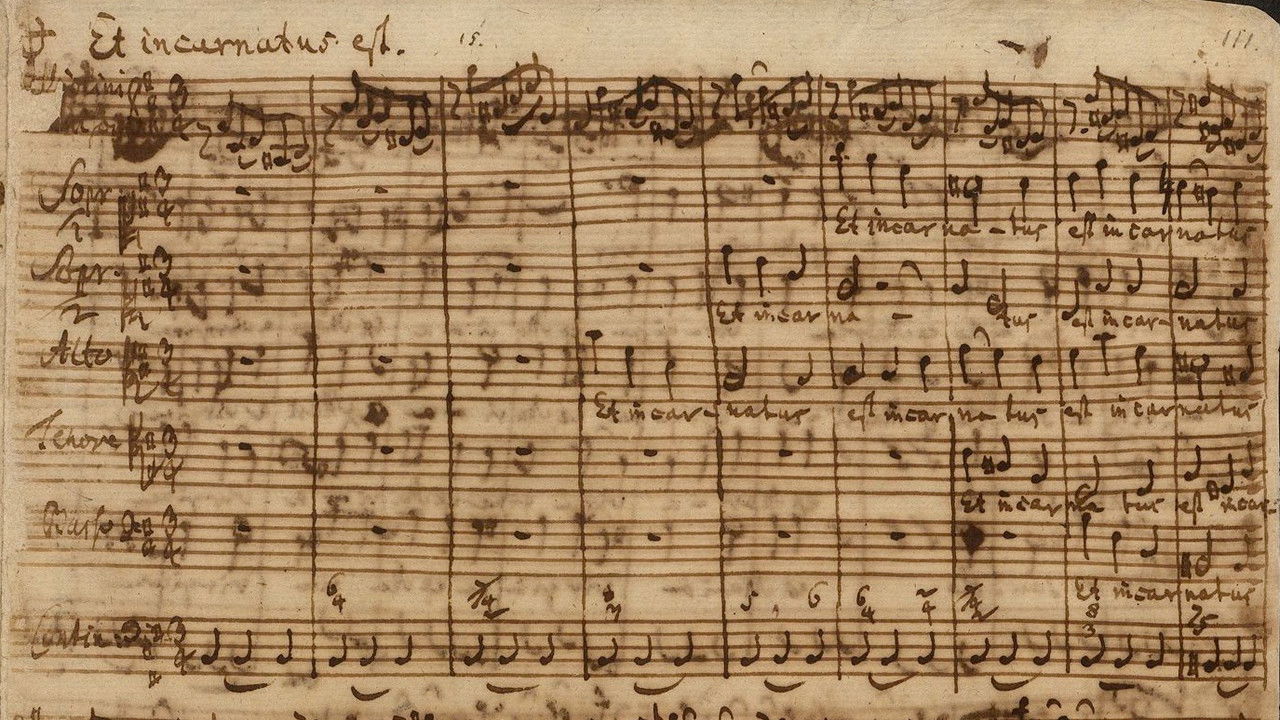 Et incarnatus est.
15.
111.
Violini
Sopr
1
Et incarna - tus est in carnatus
Sopr.
2
Et incarna - tus est incar- natus
Alto
Et incar- natus est incarna tus est incarnatus
Tenore
Et incarna tus est incar-
Basso
Et incarnatus
6 4
5 6 6 4
Contin